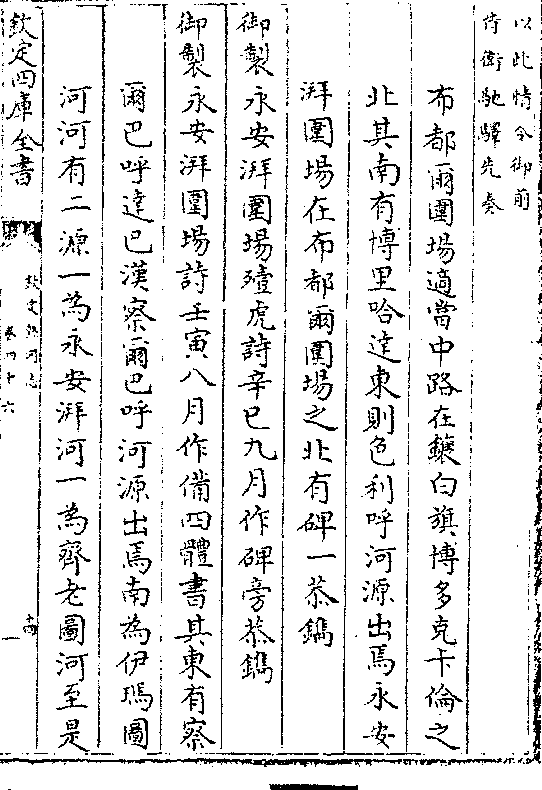 以此時令御前
侍衛馳驛先奏
布都爾圍場適當中路在鑲白旗博多克卡倫之
北其南有博里哈達東則色利呼河源出焉永安
湃圍場在布都爾圍場之北有碑一恭鐫
御製永安湃圍場殪虎詩辛巳九月作碑旁恭鐫
御製永安湃圍場詩壬寅八月作備四體書其東有察
爾巴呼達巴漢察爾巴呼河源出焉南為伊瑪圖
河河有二源一為永安湃河一為齊老圖河至是
欽定四庫全書
欽定熱河志
卷四十六